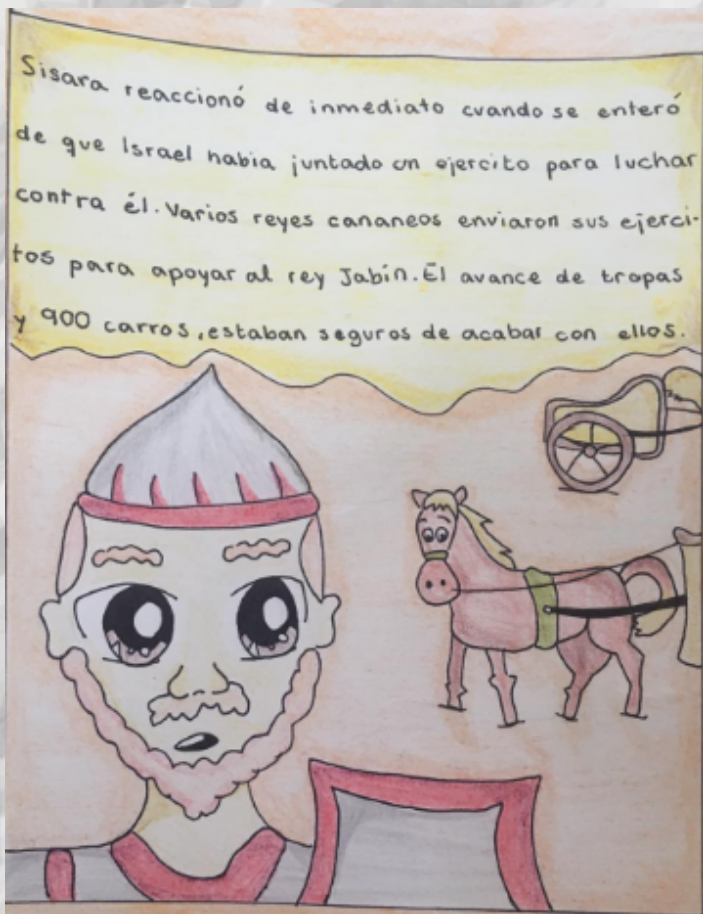 Sisara reaccionó de inmediato cuando se enteró
de que Israel habia juntado un ejercito para luchar
contra él. Varios reyes cananeos enviaron sus ejerci-
tos para apoyar al rey Jabín. El avance de tropas
y 900 carros, estaban seguros de acabar con ellos.